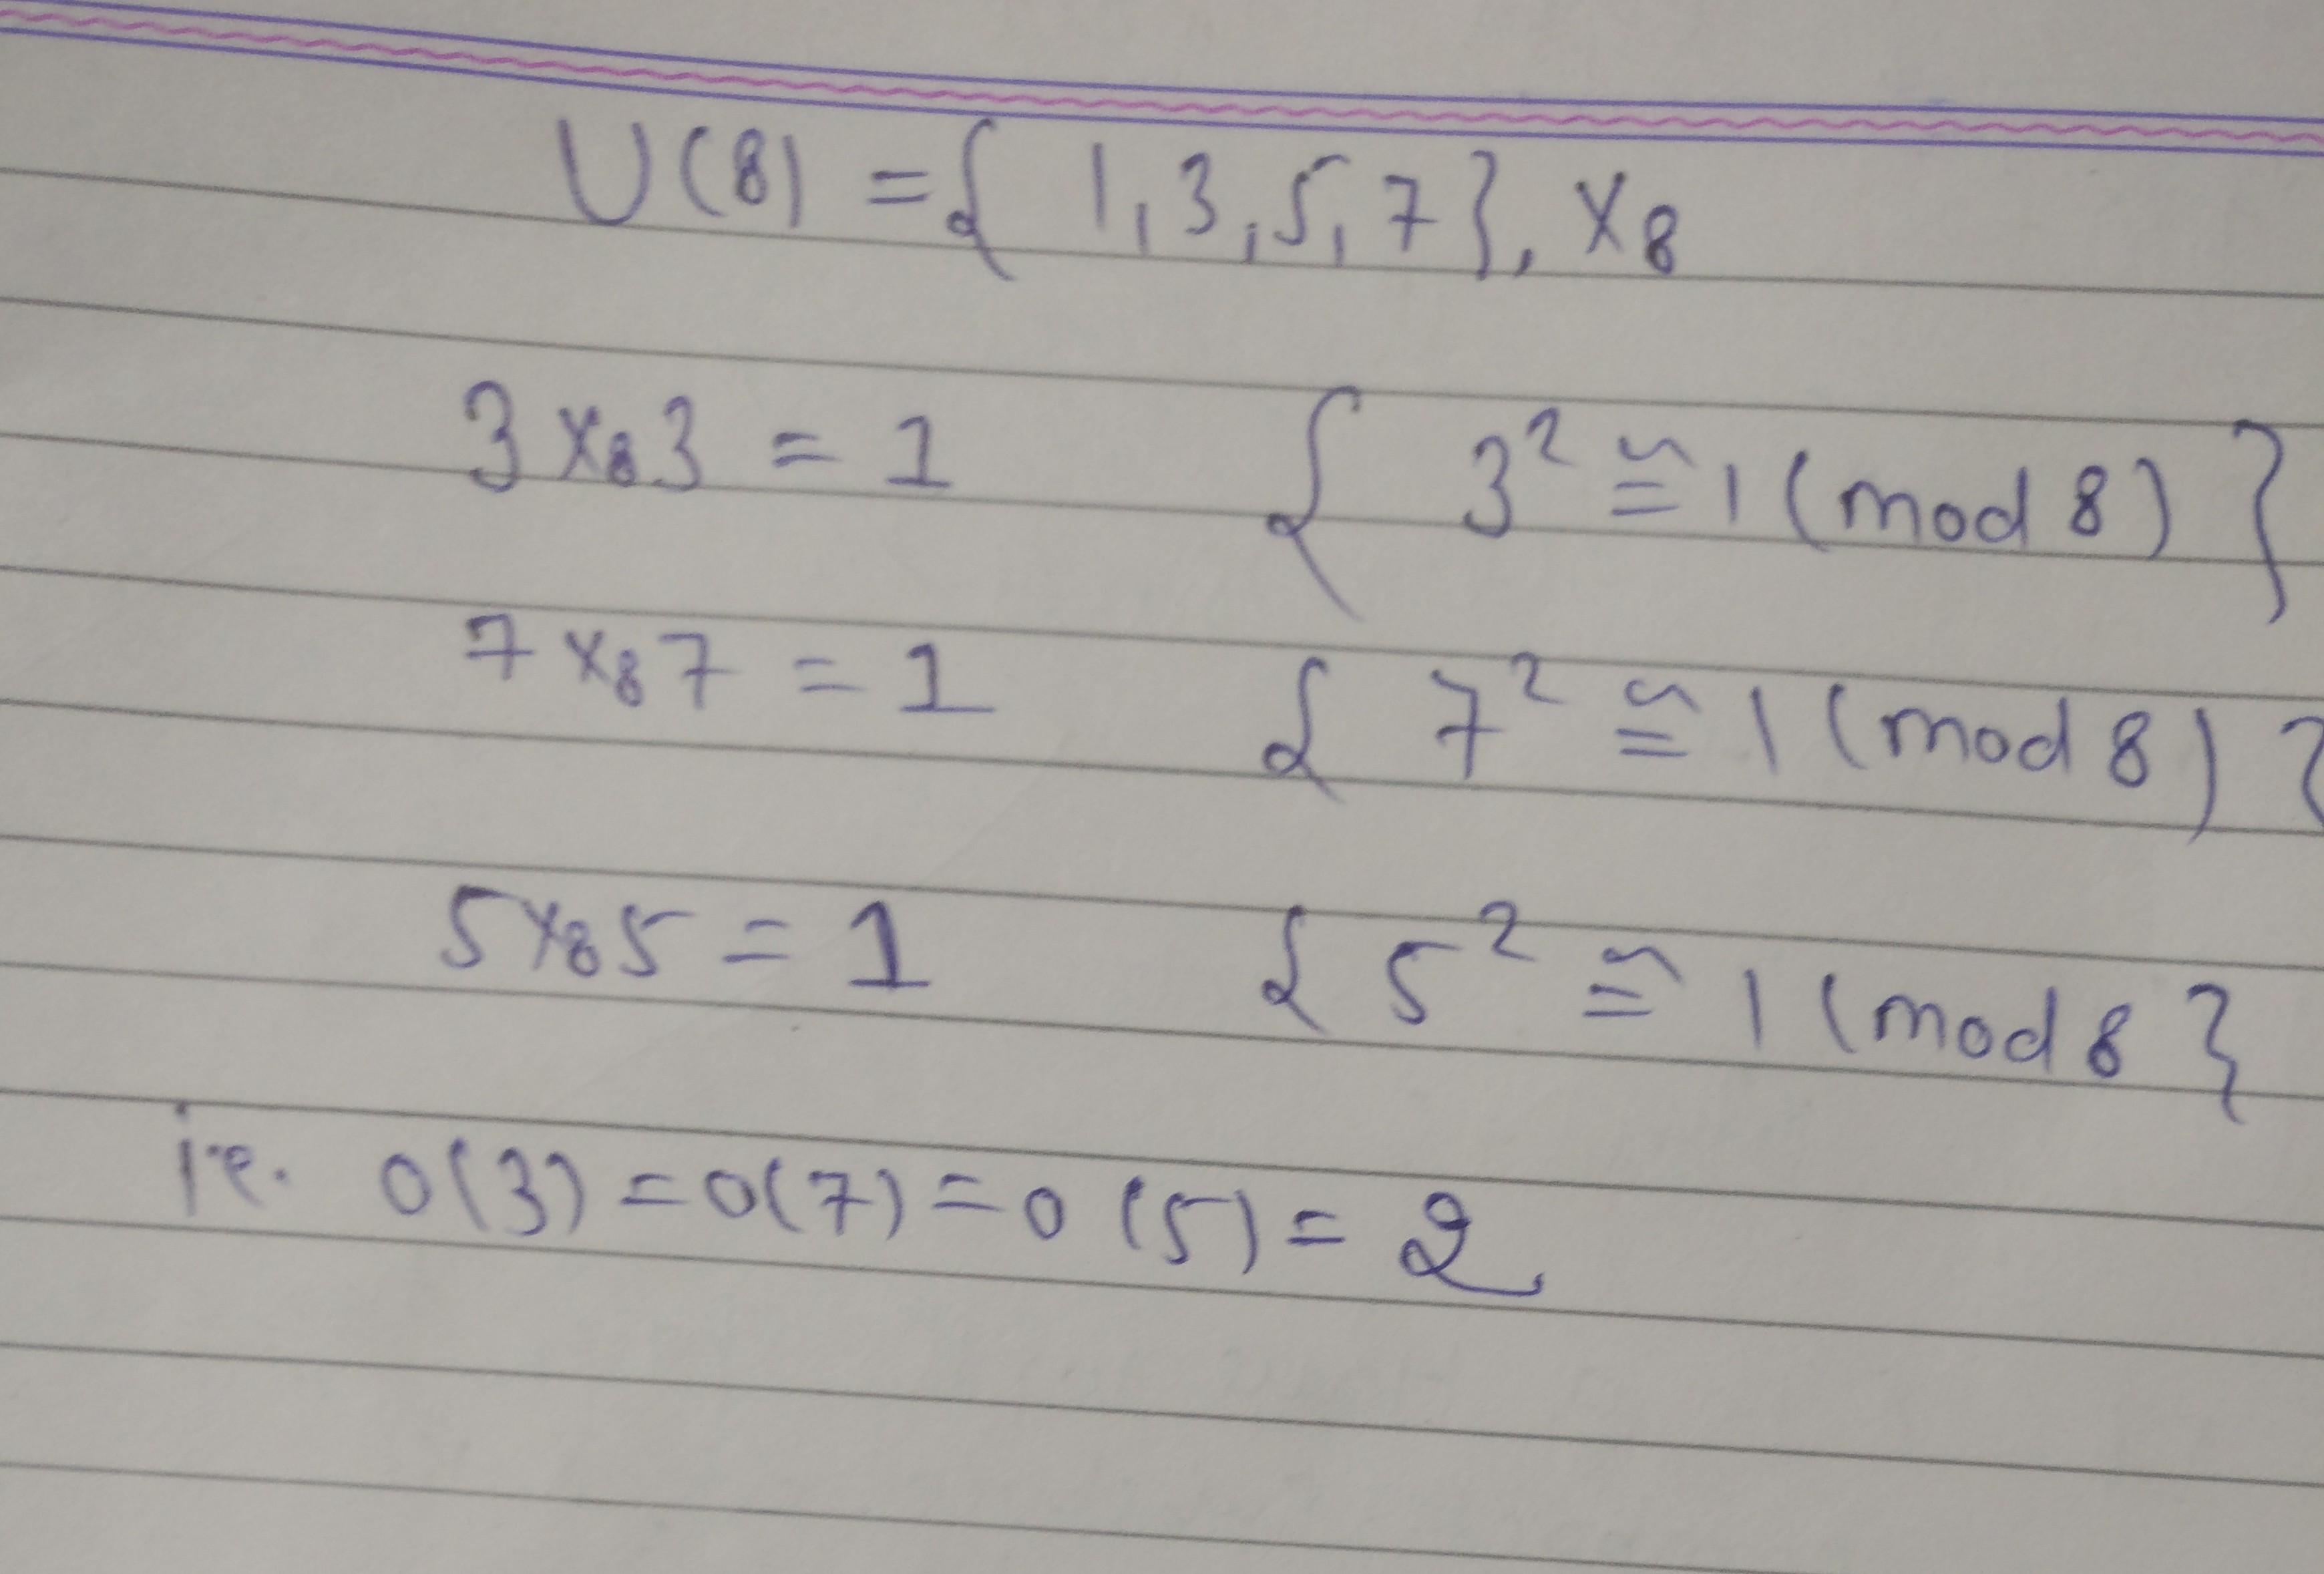 U(8) = { 1, 3, 5, 7 }, ×₈
3 ×₈ 3 = 1 { 3² ≅ 1 (mod 8) }
7 ×₈ 7 = 1 { 7² ≅ 1 (mod 8) }
5 ×₈ 5 = 1 { 5² ≅ 1 (mod 8 }
ie. o(3) = o(7) = o (5) = 2